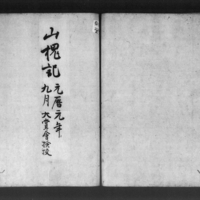 山槐記 元暦元年
九月 大嘗會